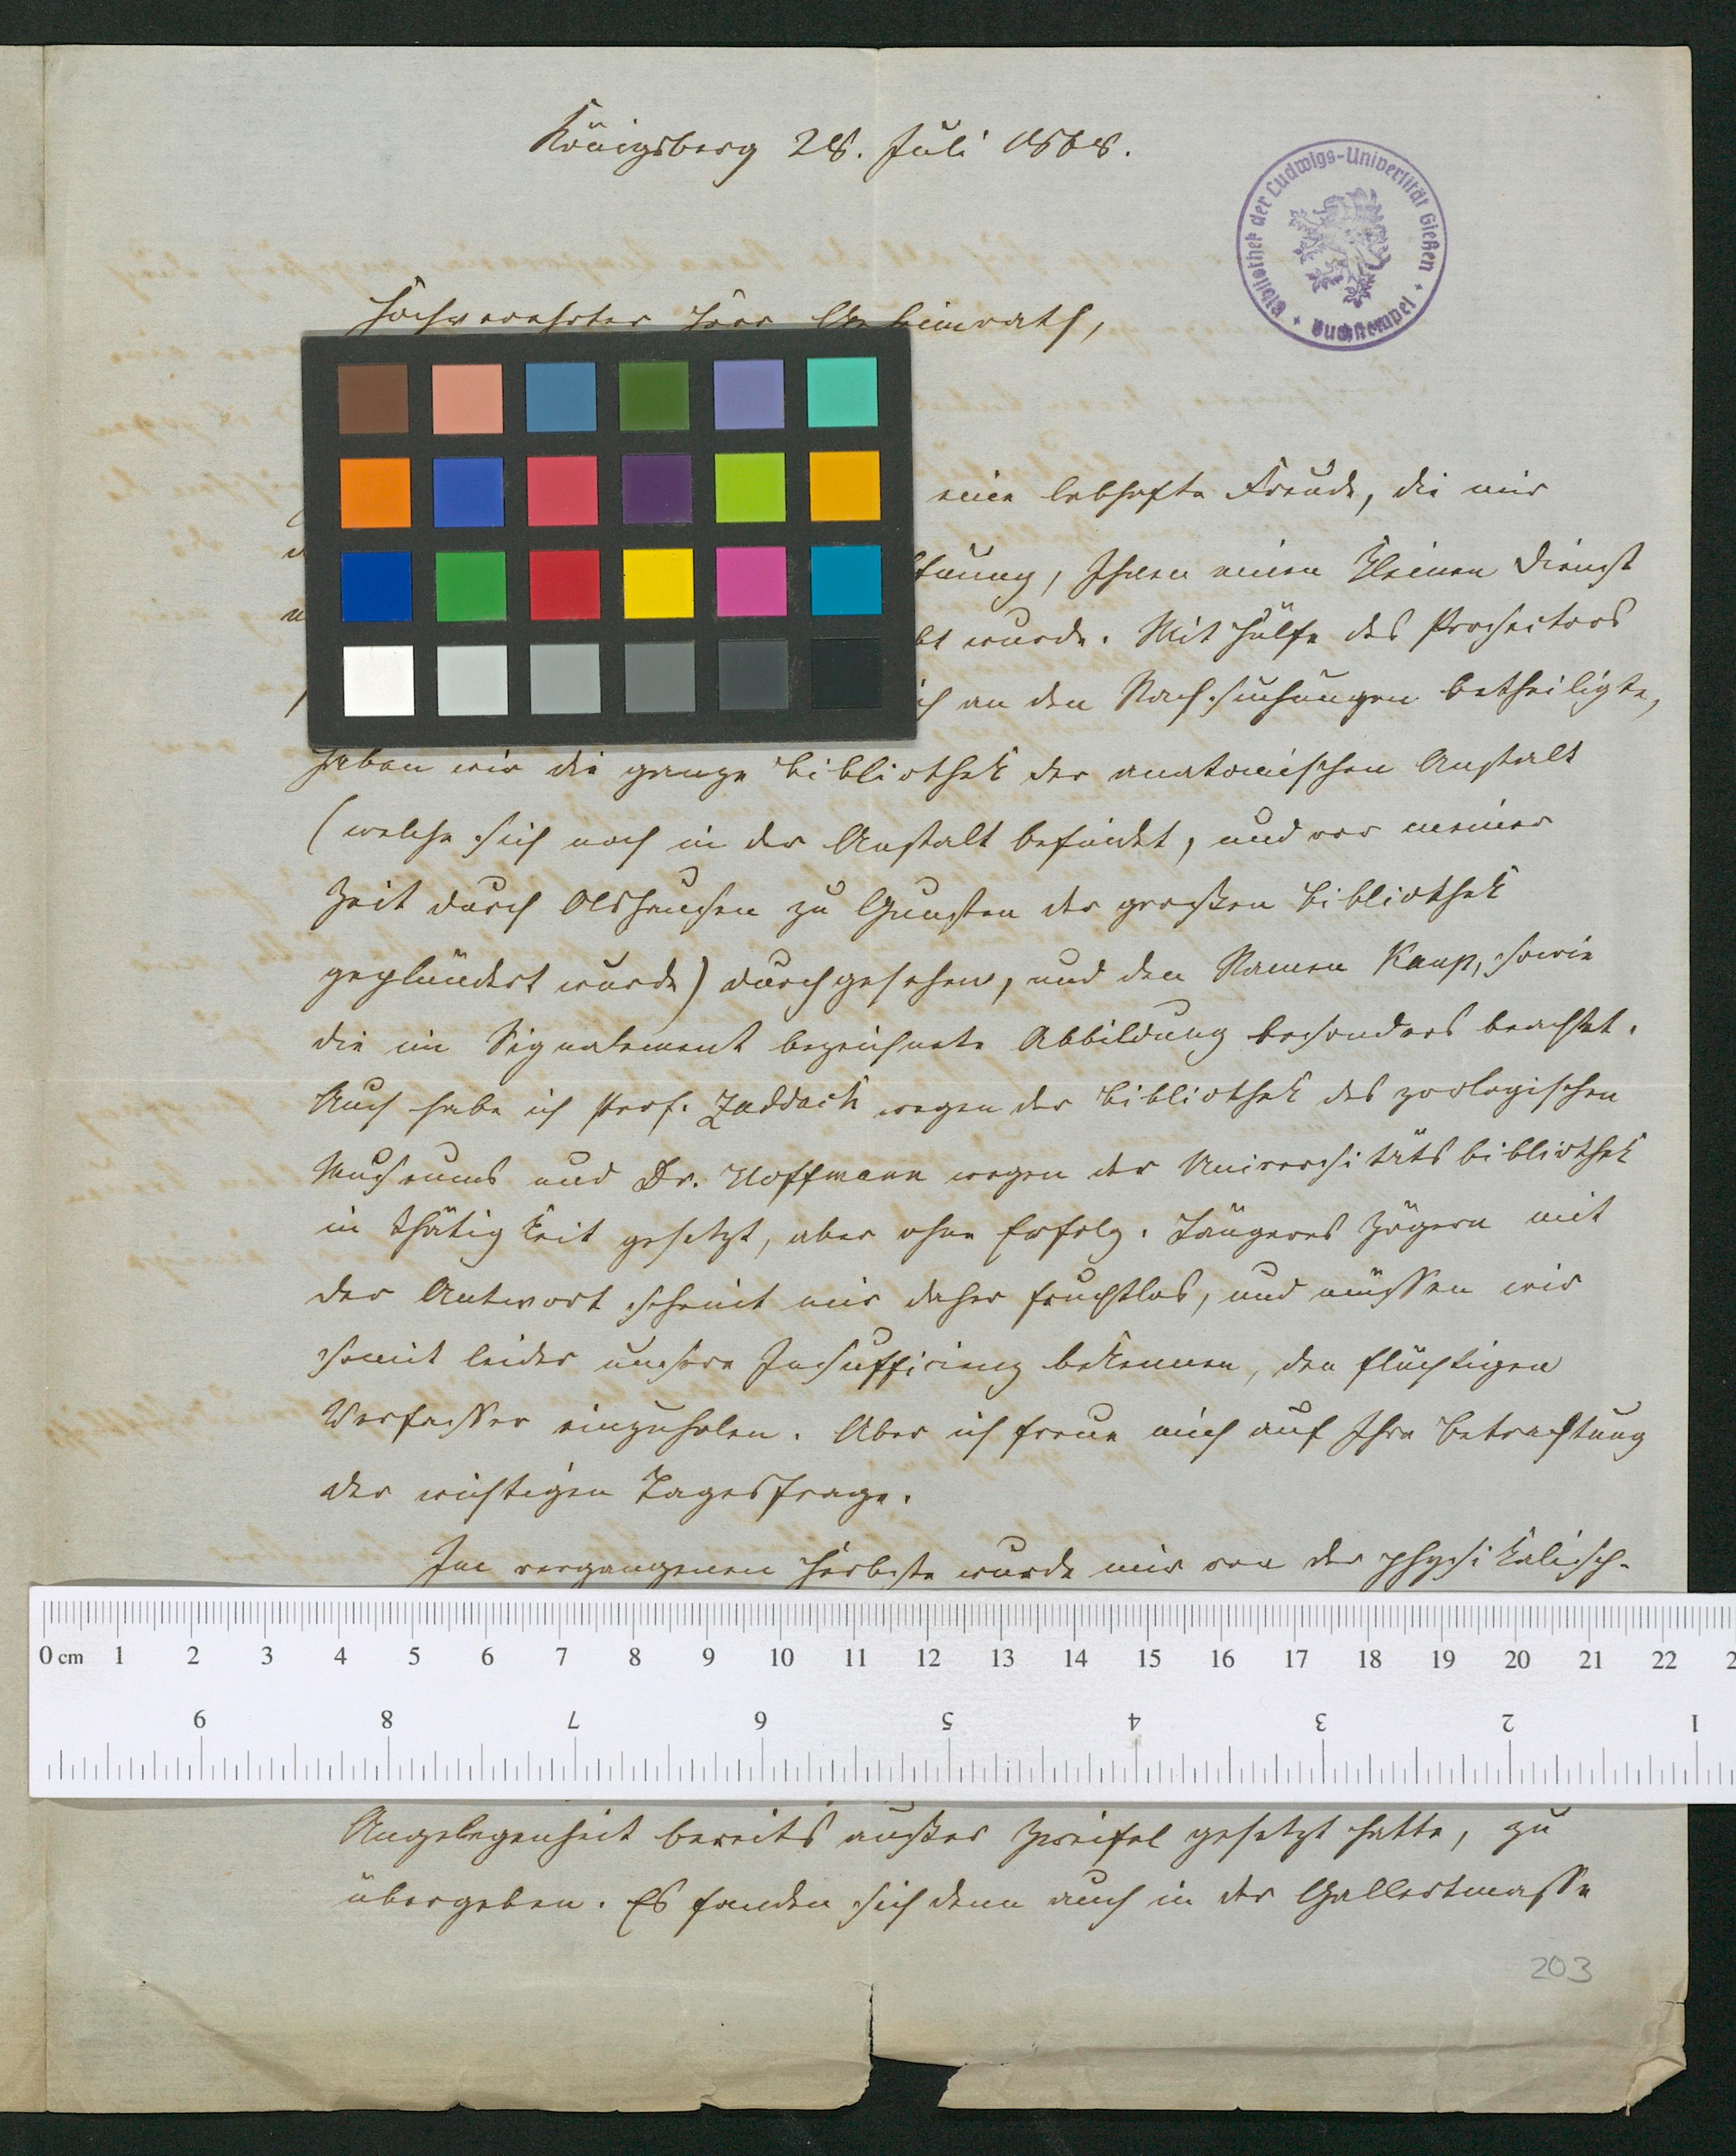 Königsberg 28. Juli 1868.
Bibliothek der Ludwigs-Universität Gießen
Buchstempel
Hochverehrter Herr Geheimrath,
eine lebhafte Freude, die mir
Ihnen einen kleinen Dienst
wurde. Mit Hülfe des Prosectors
an den Nachsuchungen betheiligte,
haben wir die ganze Bibliothek der anatomischen Anstalt
(welche sich noch in der Anstalt befindet, und vor meiner
Zeit durch Olshausen zu Gunsten der großen Bibliothek
geplündert wurde) durchgesehen, und den Namen Kaup, sowie
die im Signalement bezeichnete Abbildung besonders beachtet.
Auch habe ich Prof. Zaddach wegen der Bibliothek des zoologischen
Museums und Dr. Hoffmann wegen der Universitätsbibliothek
in Thätigkeit gesetzt, aber ohne Erfolg. Längeres Zögern mit
der Antwort scheint mir daher fruchtlos, und müssen wir
somit leider unsere Insufficienz bekennen, den flüchtigen
Verfasser einzuholen. Aber ich freue mich auf Ihre Betrachtung
der wichtigen Tagesfrage.
Im vergangenen Herbste wurde mir von der physikalisch-
0 cm 1 2 3 4 5 6 7 8 9 10 11 12 13 14 15 16 17 18 19 20 21 22
9 8 7 6 5 4 3 2 1
Angelegenheit bereits außer Zweifel gesetzt hatte, zu
übergeben. Es fanden sich denn auch in der Gallertmasse
203